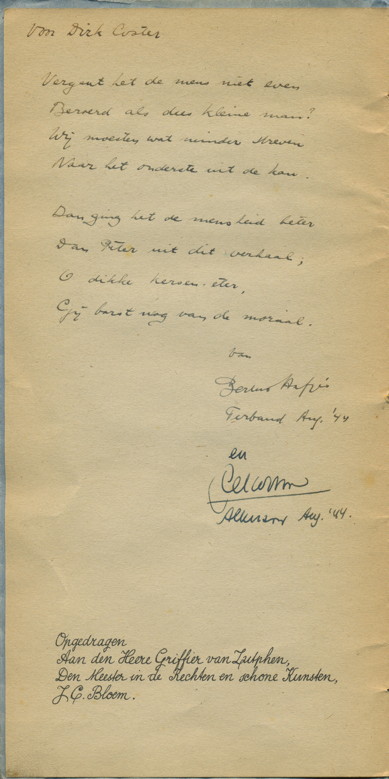 Von Dirk Coster
Vergaat het de mens niet even
Beroerd als dees kleine man?
Wij moesten wat minder streven
Naar het onderste uit de kan.
Dan ging het de mensheid beter
Dan Peter uit dit verhaal;
O dikke kersen-eter,
Gij barst nog van de moraal.
van
Bertus Aafjes
Terband Aug. '44
en
Aug. '44.
Opgedragen
Aan den Heere Griffier van Zutphen,
Den Meester in de Rechten en schone Kunsten,
J.C. Bloem.